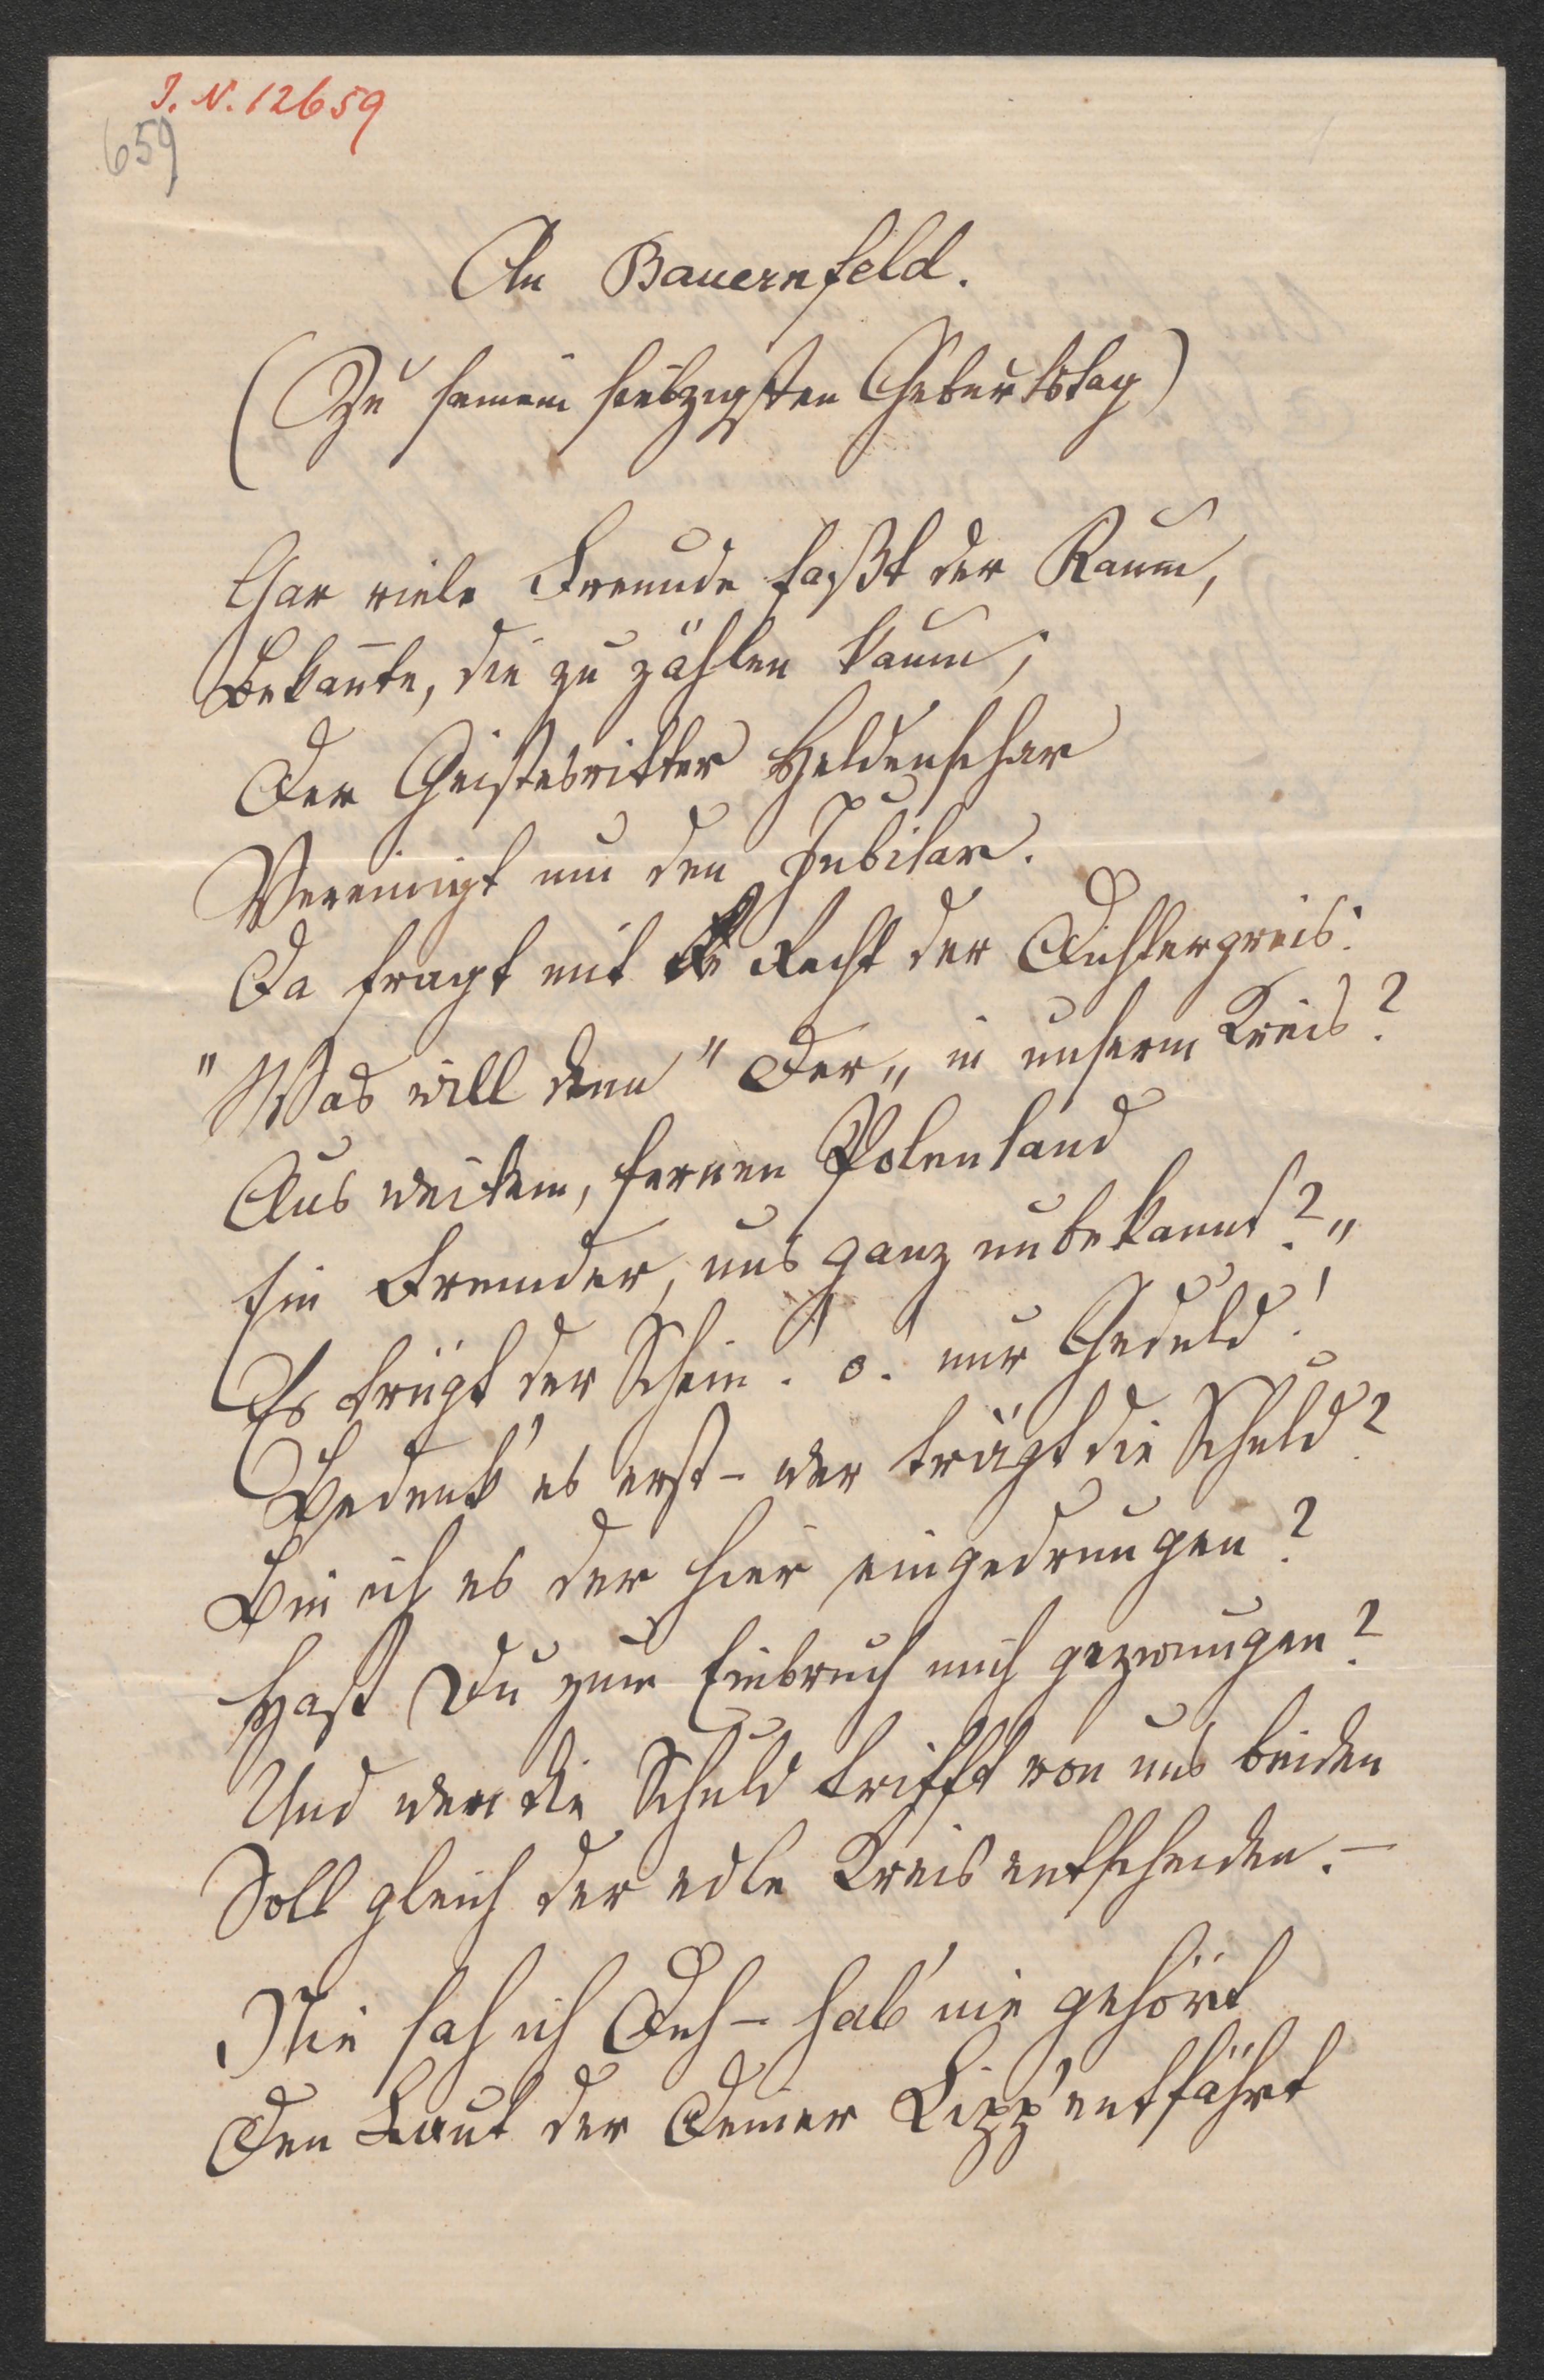 J. N. 12659
659
An Bauernfeld.
(Zu seinem siebzigsten Geburtstag)
Gar viele Freunde faßt der Raum,
Bekan̄te, die zu zählen kaum;
Der Geistesritter Heldenschar
Vereinigt um den Jubilar.
Da fragt mit Recht der Dichtergreis:
"Was will denn "Der„ in unserm Kreis?
Aus weitem, fernen Polenland
Ein Fremder, uns ganz unbekannt?„
Es trügt der Schein. o. nur Geduld!
Bedenk' es erst – wer trägt die Schuld?
Bin ich es der hier eingedrungen?
Hast Du zum Einbruch mich gezwungen?
Und wen die Schuld trifft von uns beiden
Soll gleich der edle Kreis entscheiden. –
Nie sah ich Dich – hab' nie gehört
Den Laut der Deiner Lipp' entfährt